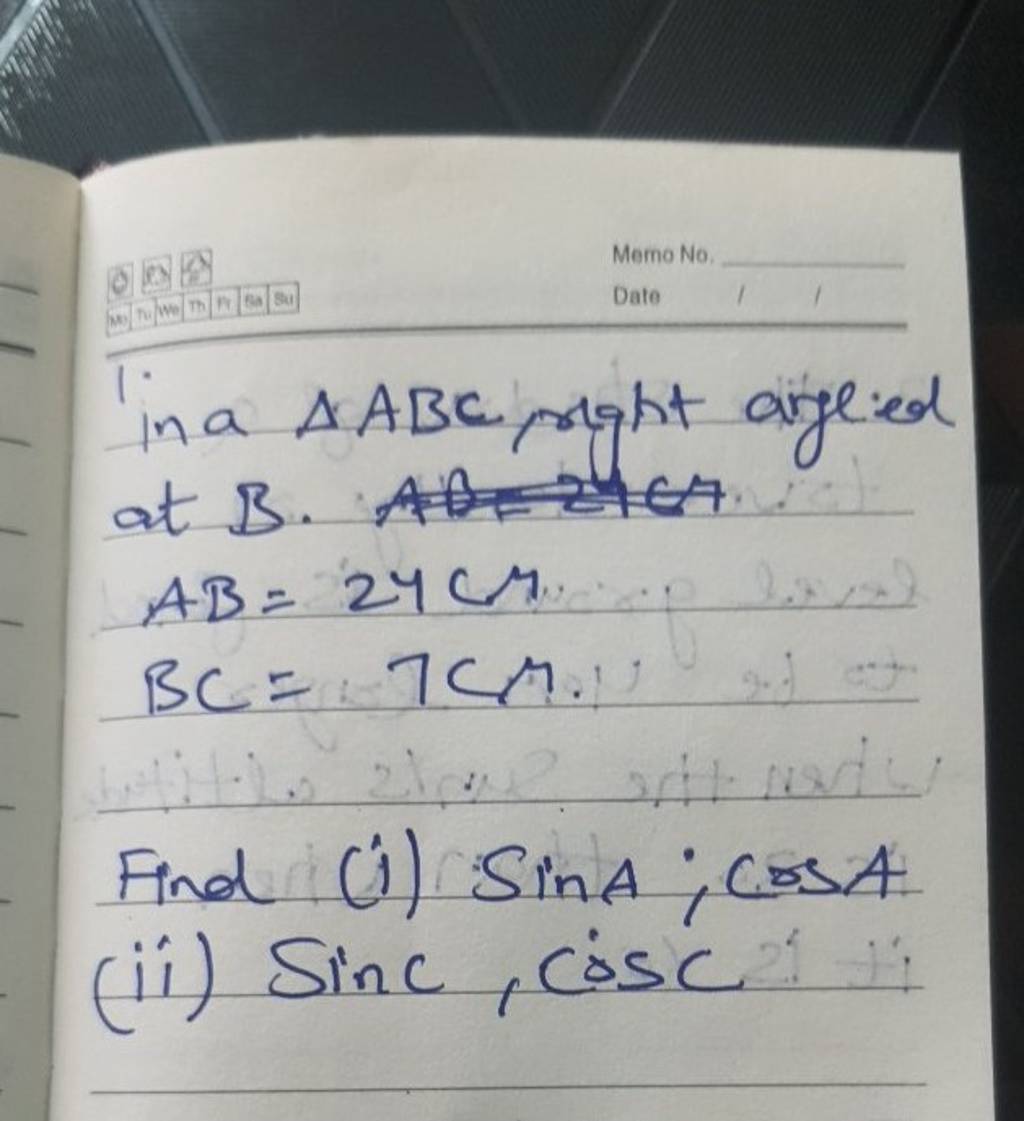 Memo No.
Mo Tu We Th Fr Sa Su
Date / /
1.
in a △ABC, right angled
at B. AB = 24 CM
AB = 24 CM.
BC = 7 CM.
Find (i) Sin A ; Cos A
(ii) Sin C , Cos C